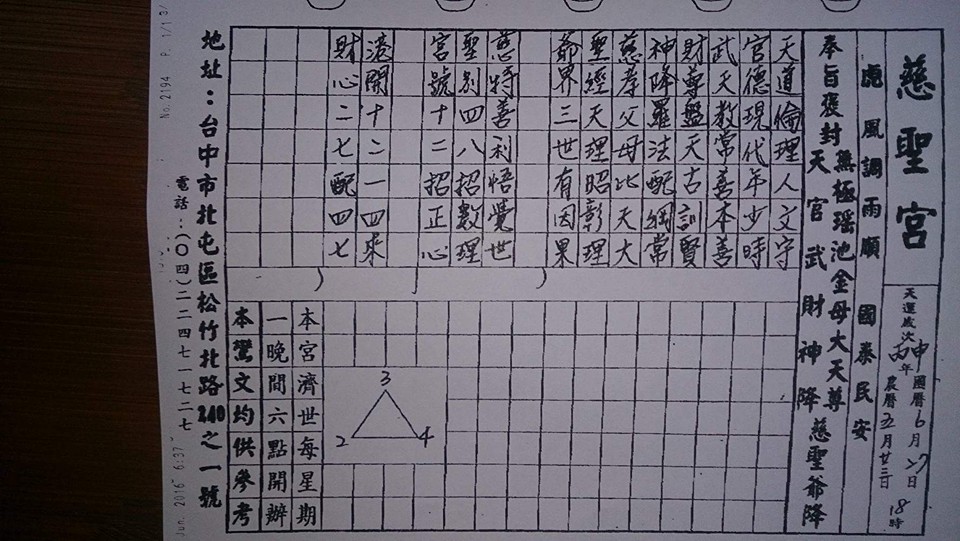 慈聖宮
天運歲次丙申年 國曆6月27日 18時
農曆五月廿三日
虎風調雨順 國泰民安
無極瑤池金母大天尊
奉旨褒封 天官武財神降 慈聖爺降
天道倫理人文守
官德現代年少時
武天教常善本善
財尊盤天古訓賢
神降羅法配綱常
慈孝父母比天大
聖經天理昭彰理
爺界三世有因果
慈特善利悟覺世
聖別四八招數理
宮號十二招正心
港開十二一四來
財心二七配四七
3
2 4
本宮濟世每星期
一晚間六點開辦
本鸞文均供參考
地址:台中市北屯區松竹北路240之一號
電話:(〇四)二二四七一七二七
Jun. 2016 6:37
No. 2194 P. 1/1